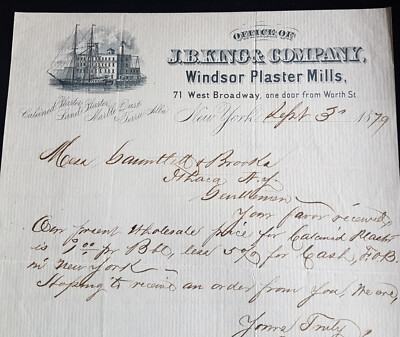 OFFICE OF
J.B. KING & COMPANY,
Windsor Plaster Mills,
71 West Broadway, one door from Worth St.
Calcined Plaster
Land Plaster
Marble Dust
& Terra Alba
New York, Sept 3d 1879
Mess Gauntlett & Brooks
Ithaca N.Y.
Gentlemen
Your favor received,
Our present Wholesale price for Calcined Plaster
is 1.00 pr Bbl, less 5% for Cash, F.O.B.
in New York —
Hoping to receive an order from you, We are,
Yours Truly